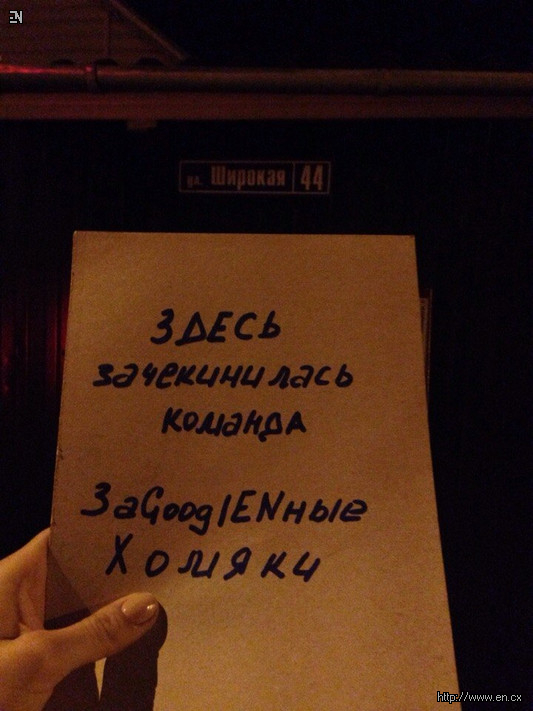 EN
ул. Широкая 44
ЗДЕСЬ
зачекинилась
команда
ЗаGooglENные
Хомяки
http://www.en.cx